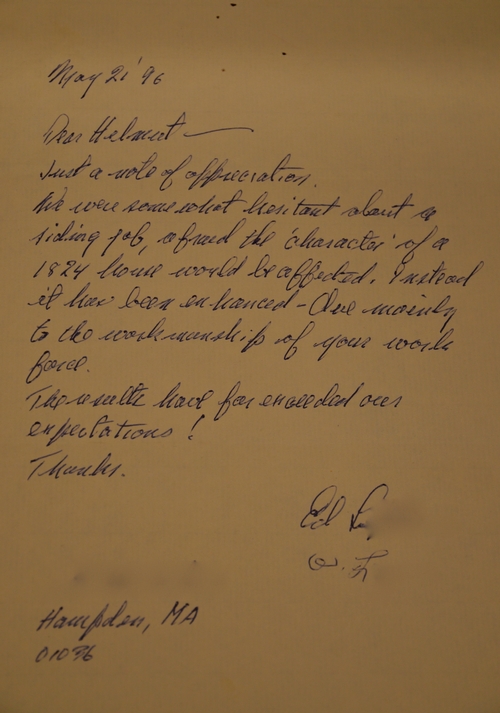 May 21 '96
Dear Helmut —
Just a note of appreciation.
We were somewhat hesitant about a
siding job, afraid the 'character' of a
1824 home would be affected. Instead
it has been enhanced - due mainly
to the workmanship of your work
force.
The results have far exceeded our
expectations!
Thanks.
Ed L
Hampden, MA
01036